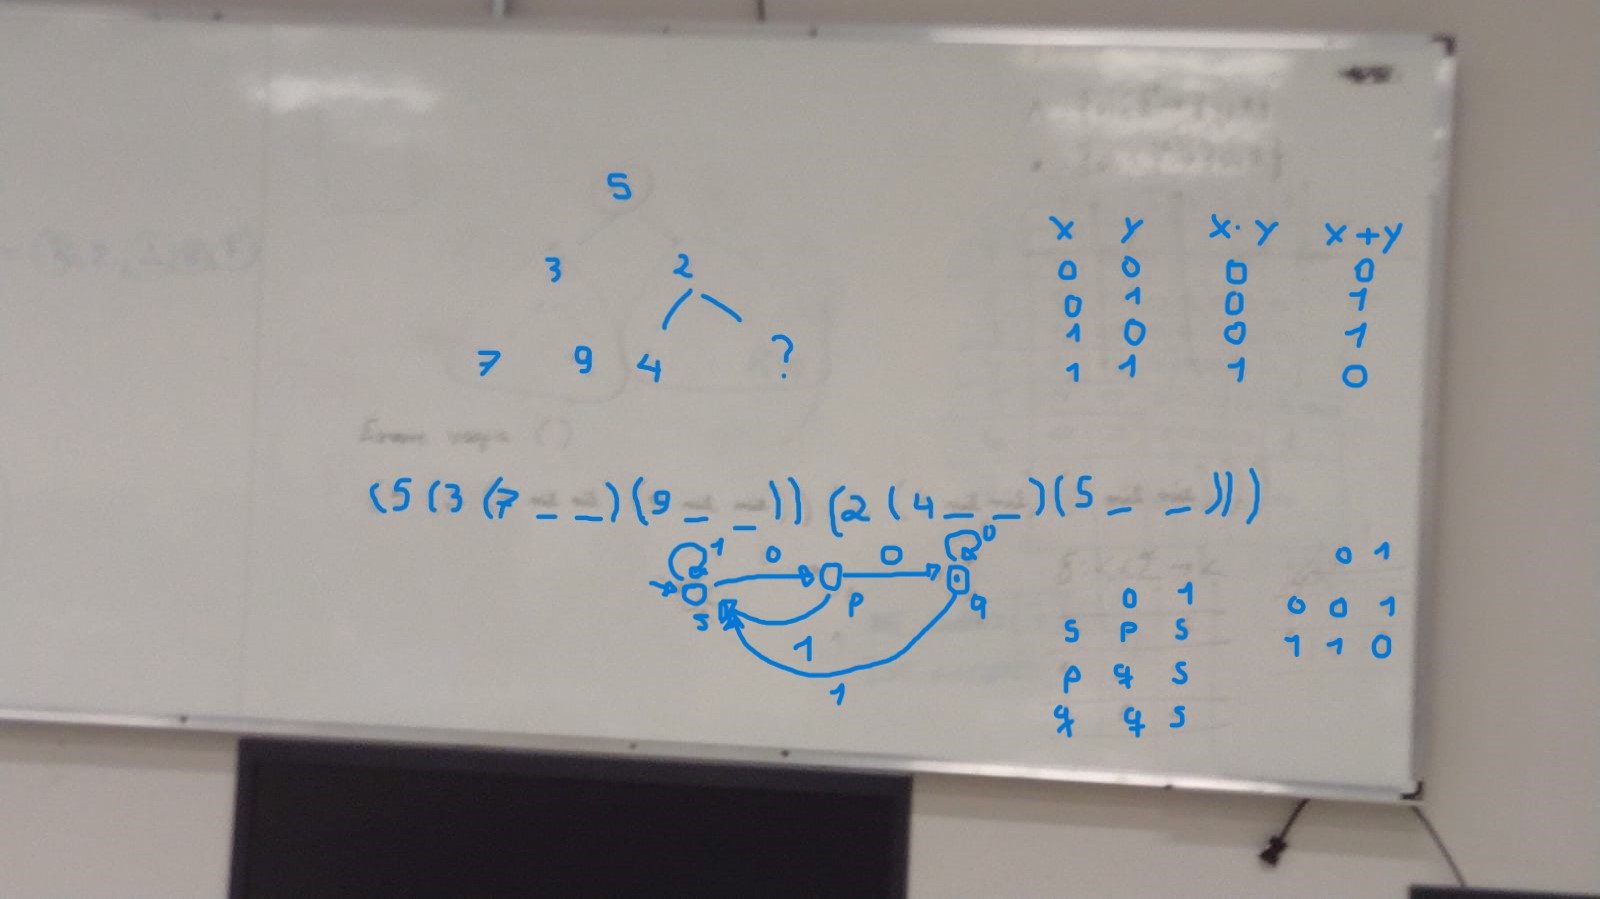 5
3 2
7 9 4 ?
X Y X·Y X+Y
0 0 0 0
0 1 0 1
1 0 0 1
1 1 1 0
(5(3(7 _ _)(9 _ _))(2(4 _ _)(5 _ _)))
1 0 0 0
s p q
1
1
0 1
s p s
p q s
q q s
0 1
0 0 1
1 1 0